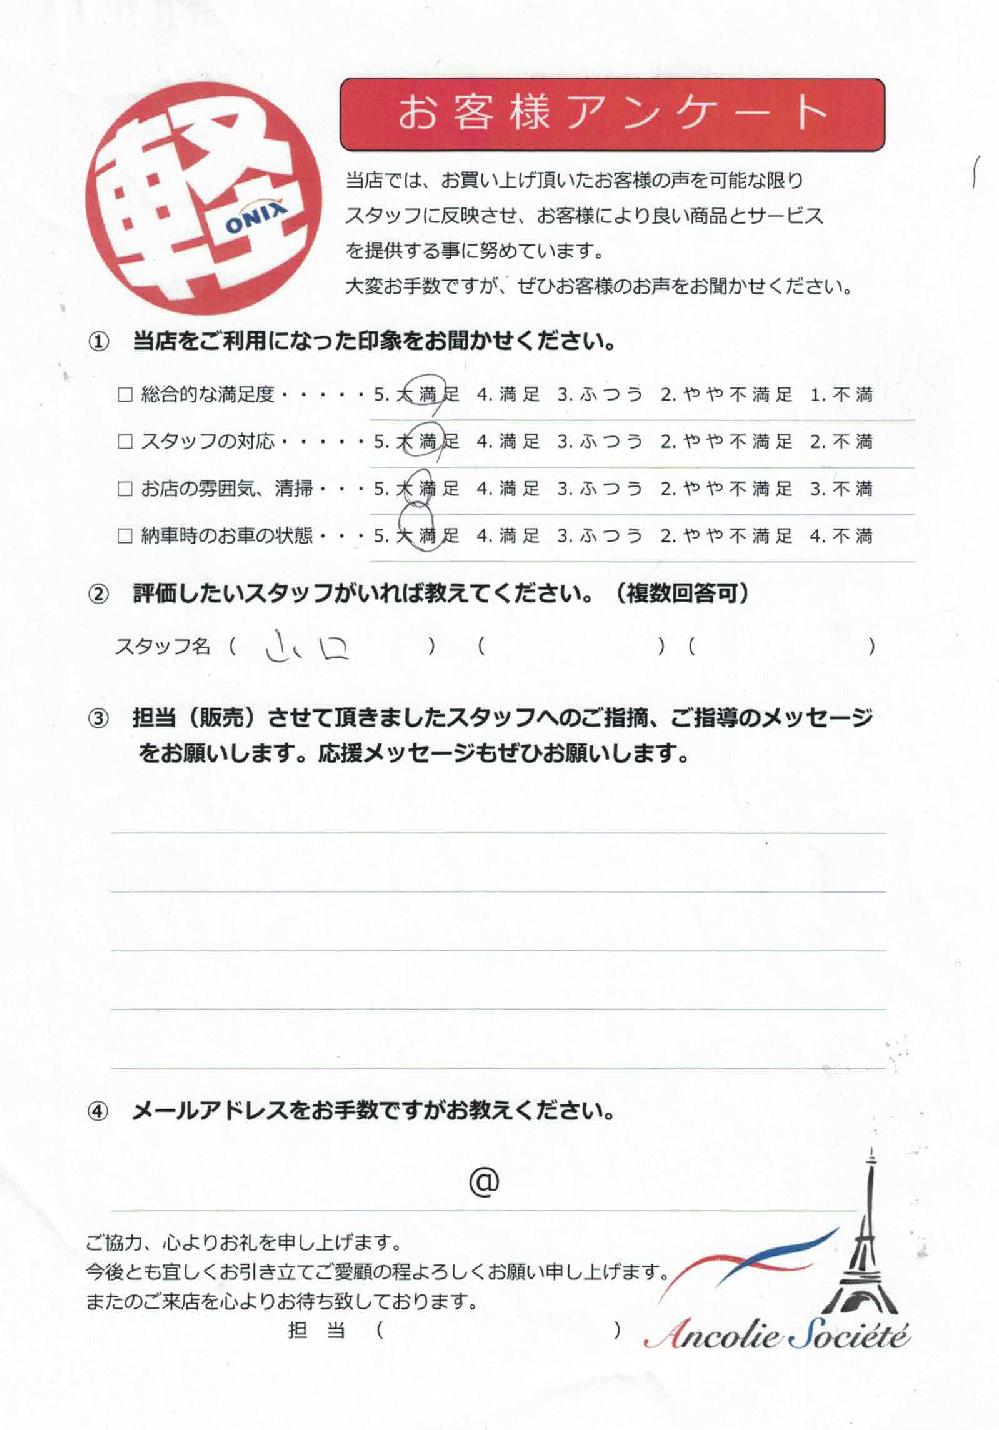 軽
ONIX
お客様アンケート
当店では、お買い上げ頂いたお客様の声を可能な限り
スタッフに反映させ、お客様により良い商品とサービス
を提供する事に努めています。
大変お手数ですが、ぜひお客様のお声をお聞かせください。
① 当店をご利用になった印象をお聞かせください。
□ 総合的な満足度・・・・・5. 大満足 4. 満足 3. ふつう 2. やや不満足 1. 不満
□ スタッフの対応・・・・・5. 大満足 4. 満足 3. ふつう 2. やや不満足 2. 不満
□ お店の雰囲気、清掃・・・5. 大満足 4. 満足 3. ふつう 2. やや不満足 3. 不満
□ 納車時のお車の状態・・・5. 大満足 4. 満足 3. ふつう 2. やや不満足 4. 不満
② 評価したいスタッフがいれば教えてください。（複数回答可）
スタッフ名（ 山口 ）（ ）（ ）
③ 担当（販売）させて頂きましたスタッフへのご指摘、ご指導のメッセージ
をお願いします。応援メッセージもぜひお願いします。
④ メールアドレスをお手数ですがお教えください。
@
ご協力、心よりお礼を申し上げます。
今後とも宜しくお引き立てご愛顧の程よろしくお願い申し上げます。
またのご来店を心よりお待ち致しております。
担 当 （ ）
Ancolie Société